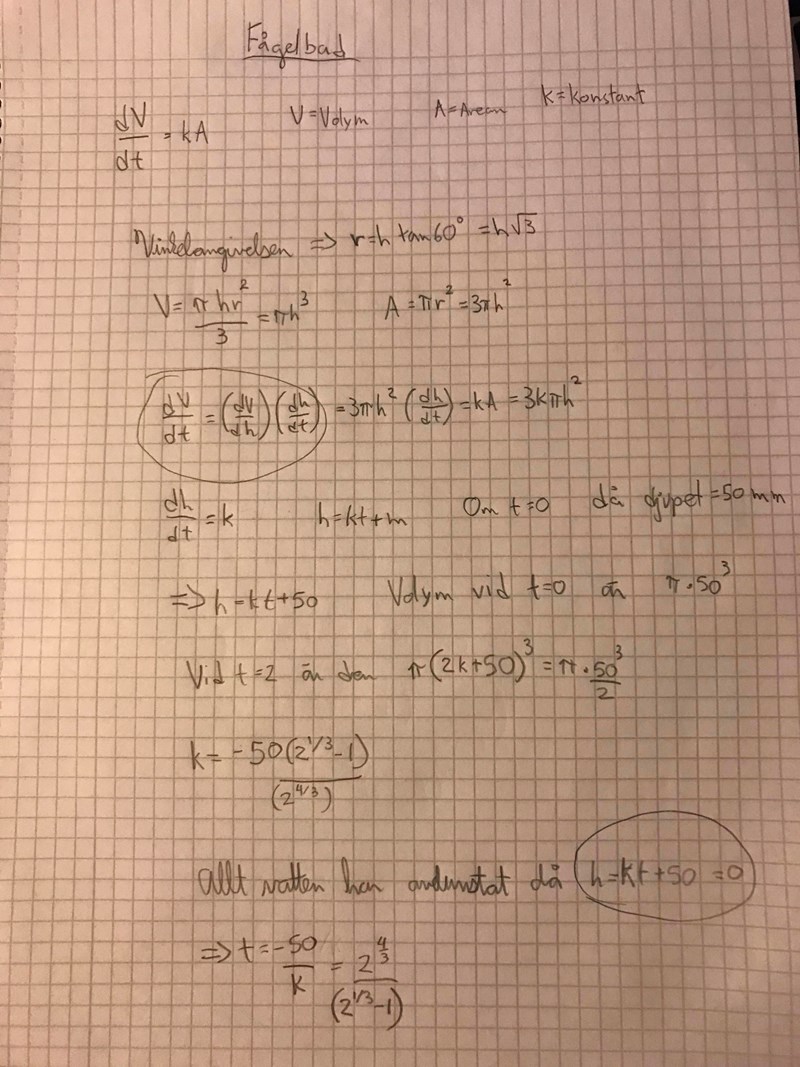 Fågelbad
dV/dt = kA V = Volym A = Arean k = konstant
Vinkelangivelsen => r = h tan 60° = h√3
V = πhr²/3 = πh³ A = πr² = 3πh²
dV/dt = (dV/dh)(dh/dt) = 3πh² (dh/dt) = kA = 3kπh²
dh/dt = k h = kt + m Om t = 0 då djupet = 50 mm
=> h = kt + 50 Volym vid t = 0 är π·50³
Vid t = 2 är den π(2k + 50)³ = π·50³/2
k = -50(2^1/3 - 1)/(2^4/3)
Allt vatten har avdunstat då h = kt + 50 = 0
=> t = -50/k = 2^4/3/(2^1/3 - 1)